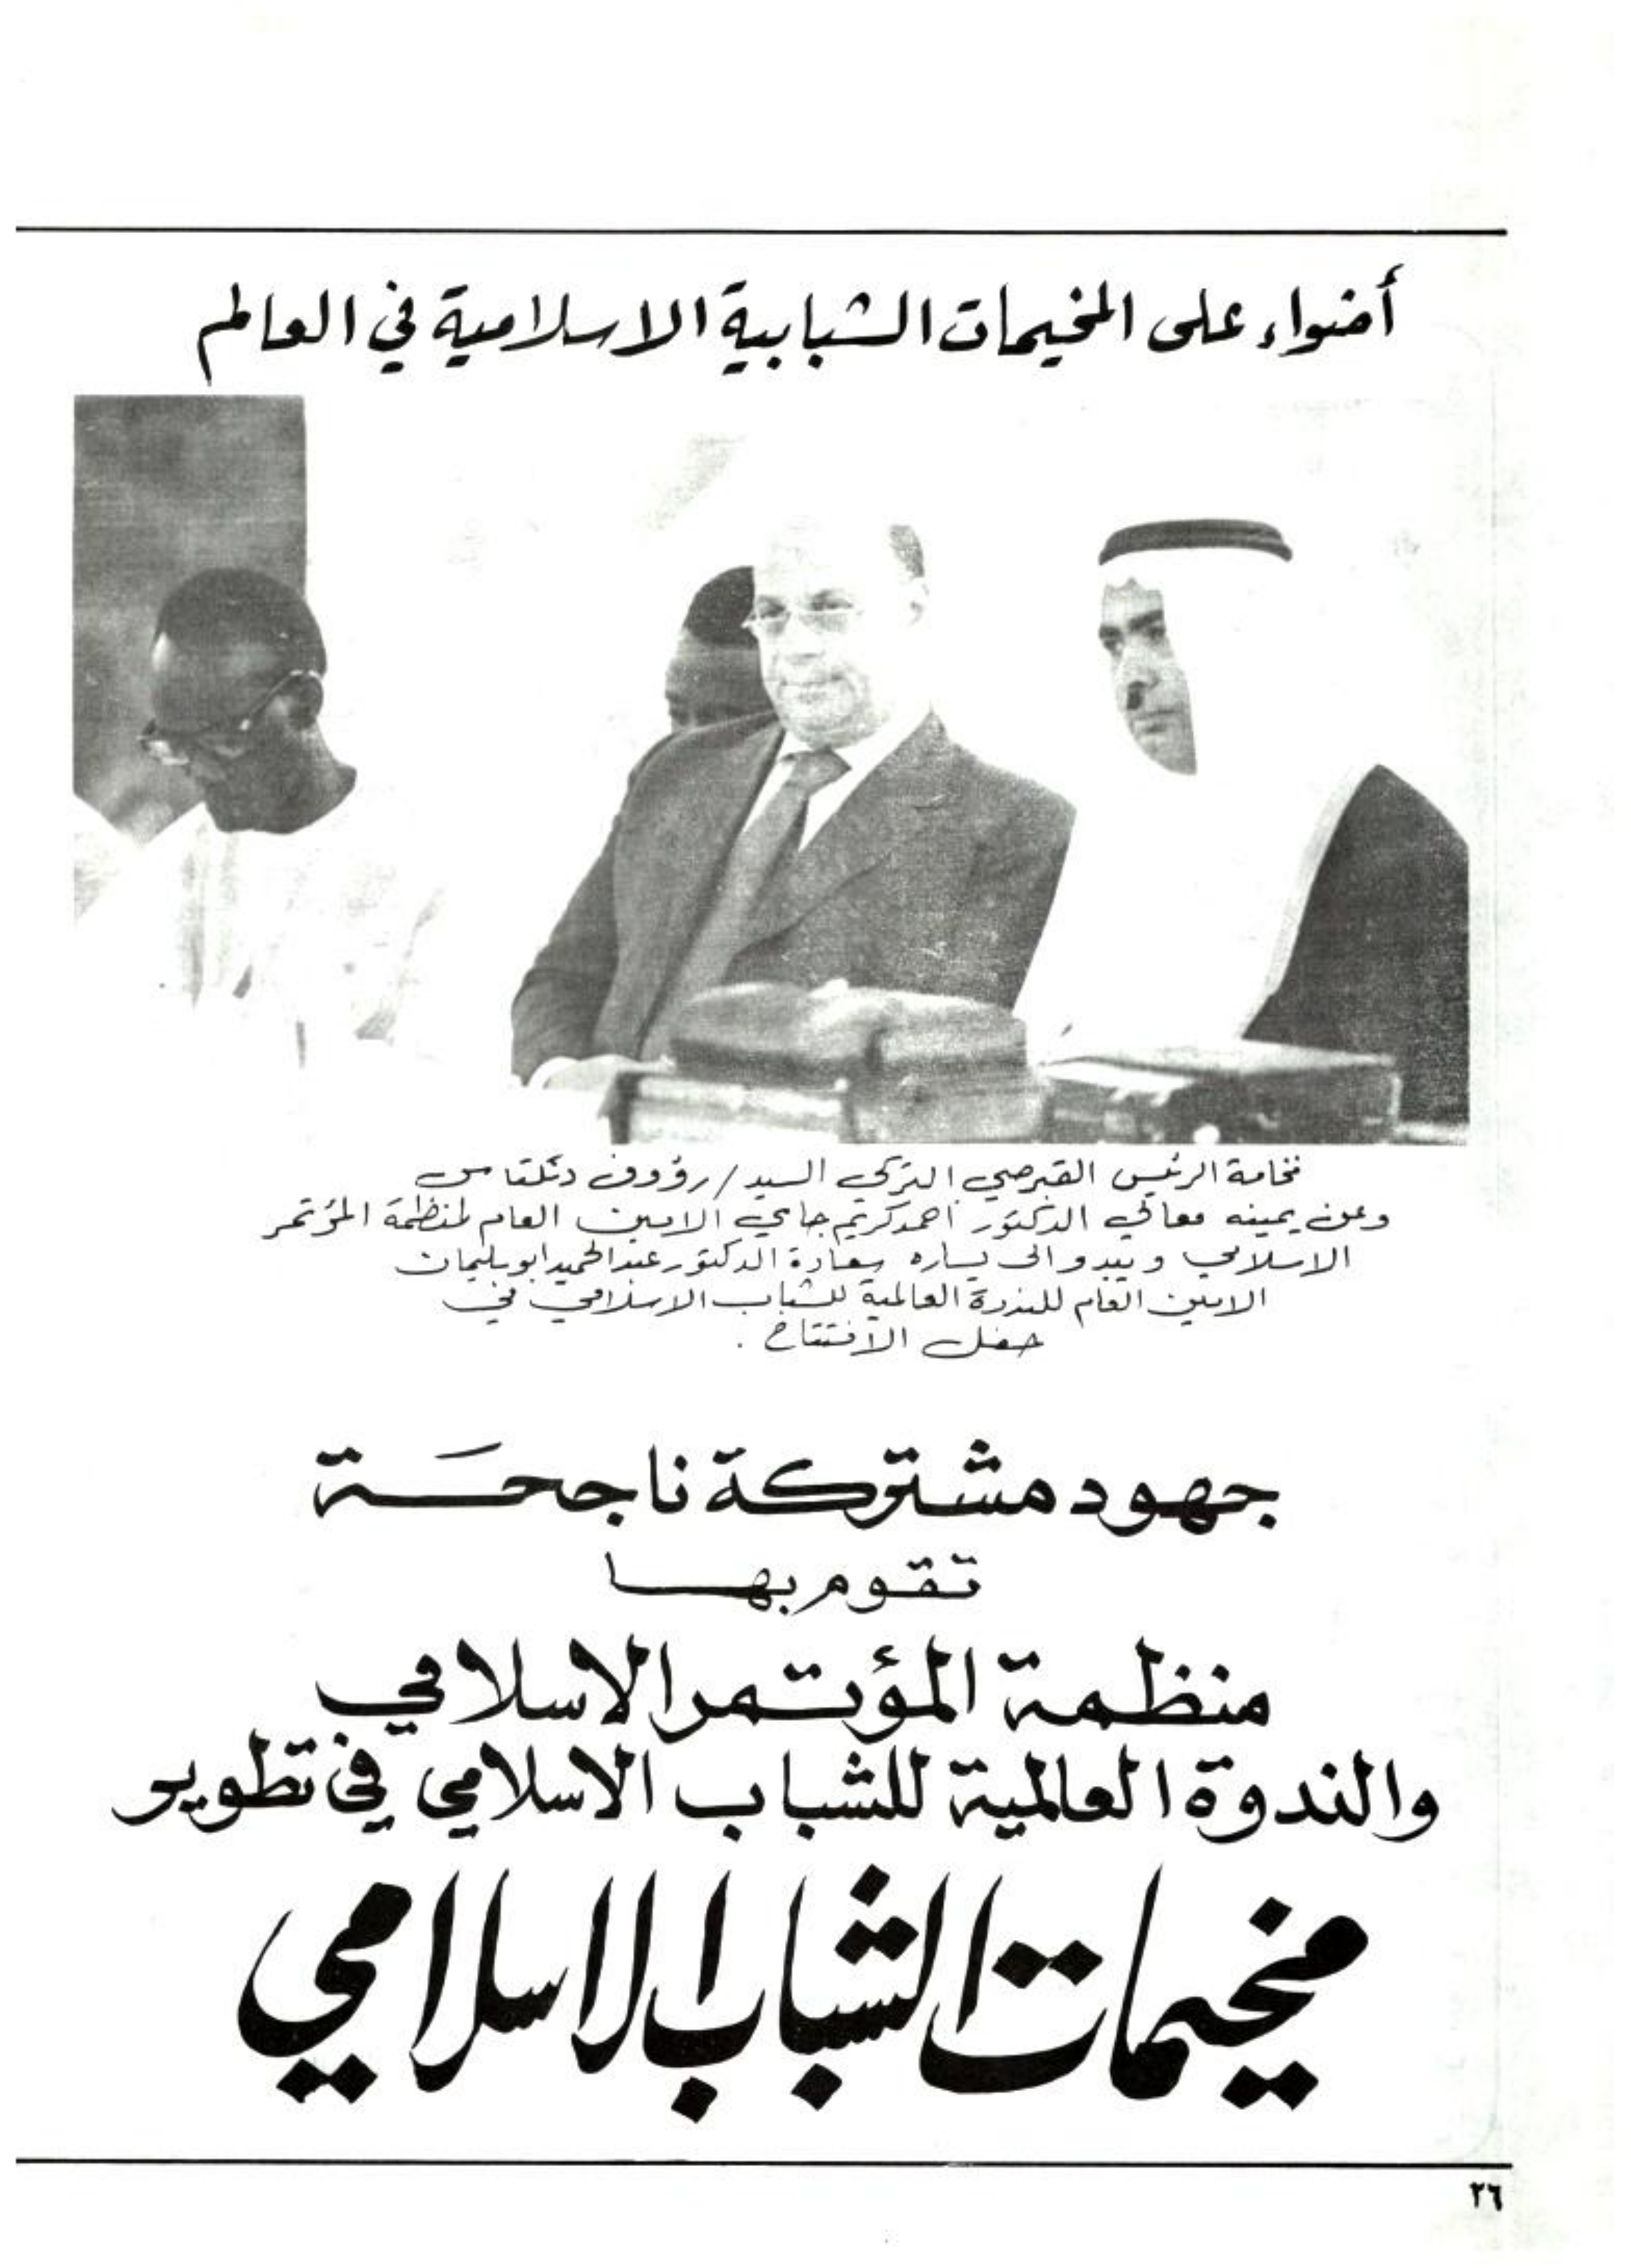 أضواء على المخيمات الشبابية الاسلامية في العالم
فخامة الرئيس القبرصي التركي السيد / رؤوف دنكتاس
وعن يمينه معالي الدكتور احمد كريم جاي الامين العام لمنظمة المؤتمر
الاسلامي ويبدو الى يساره سعادة الدكتور عبد الحميد ابو سليمان
الامين العام للندوة العالمية للشباب الاسلامي في
حفل الافتتاح .
جهود مشتركة ناجحة
تقوم بها
منظمة المؤتمر الاسلامي
والندوة العالمية للشباب الاسلامي في تطوير
مخيمات الشباب الاسلامي
٢٦